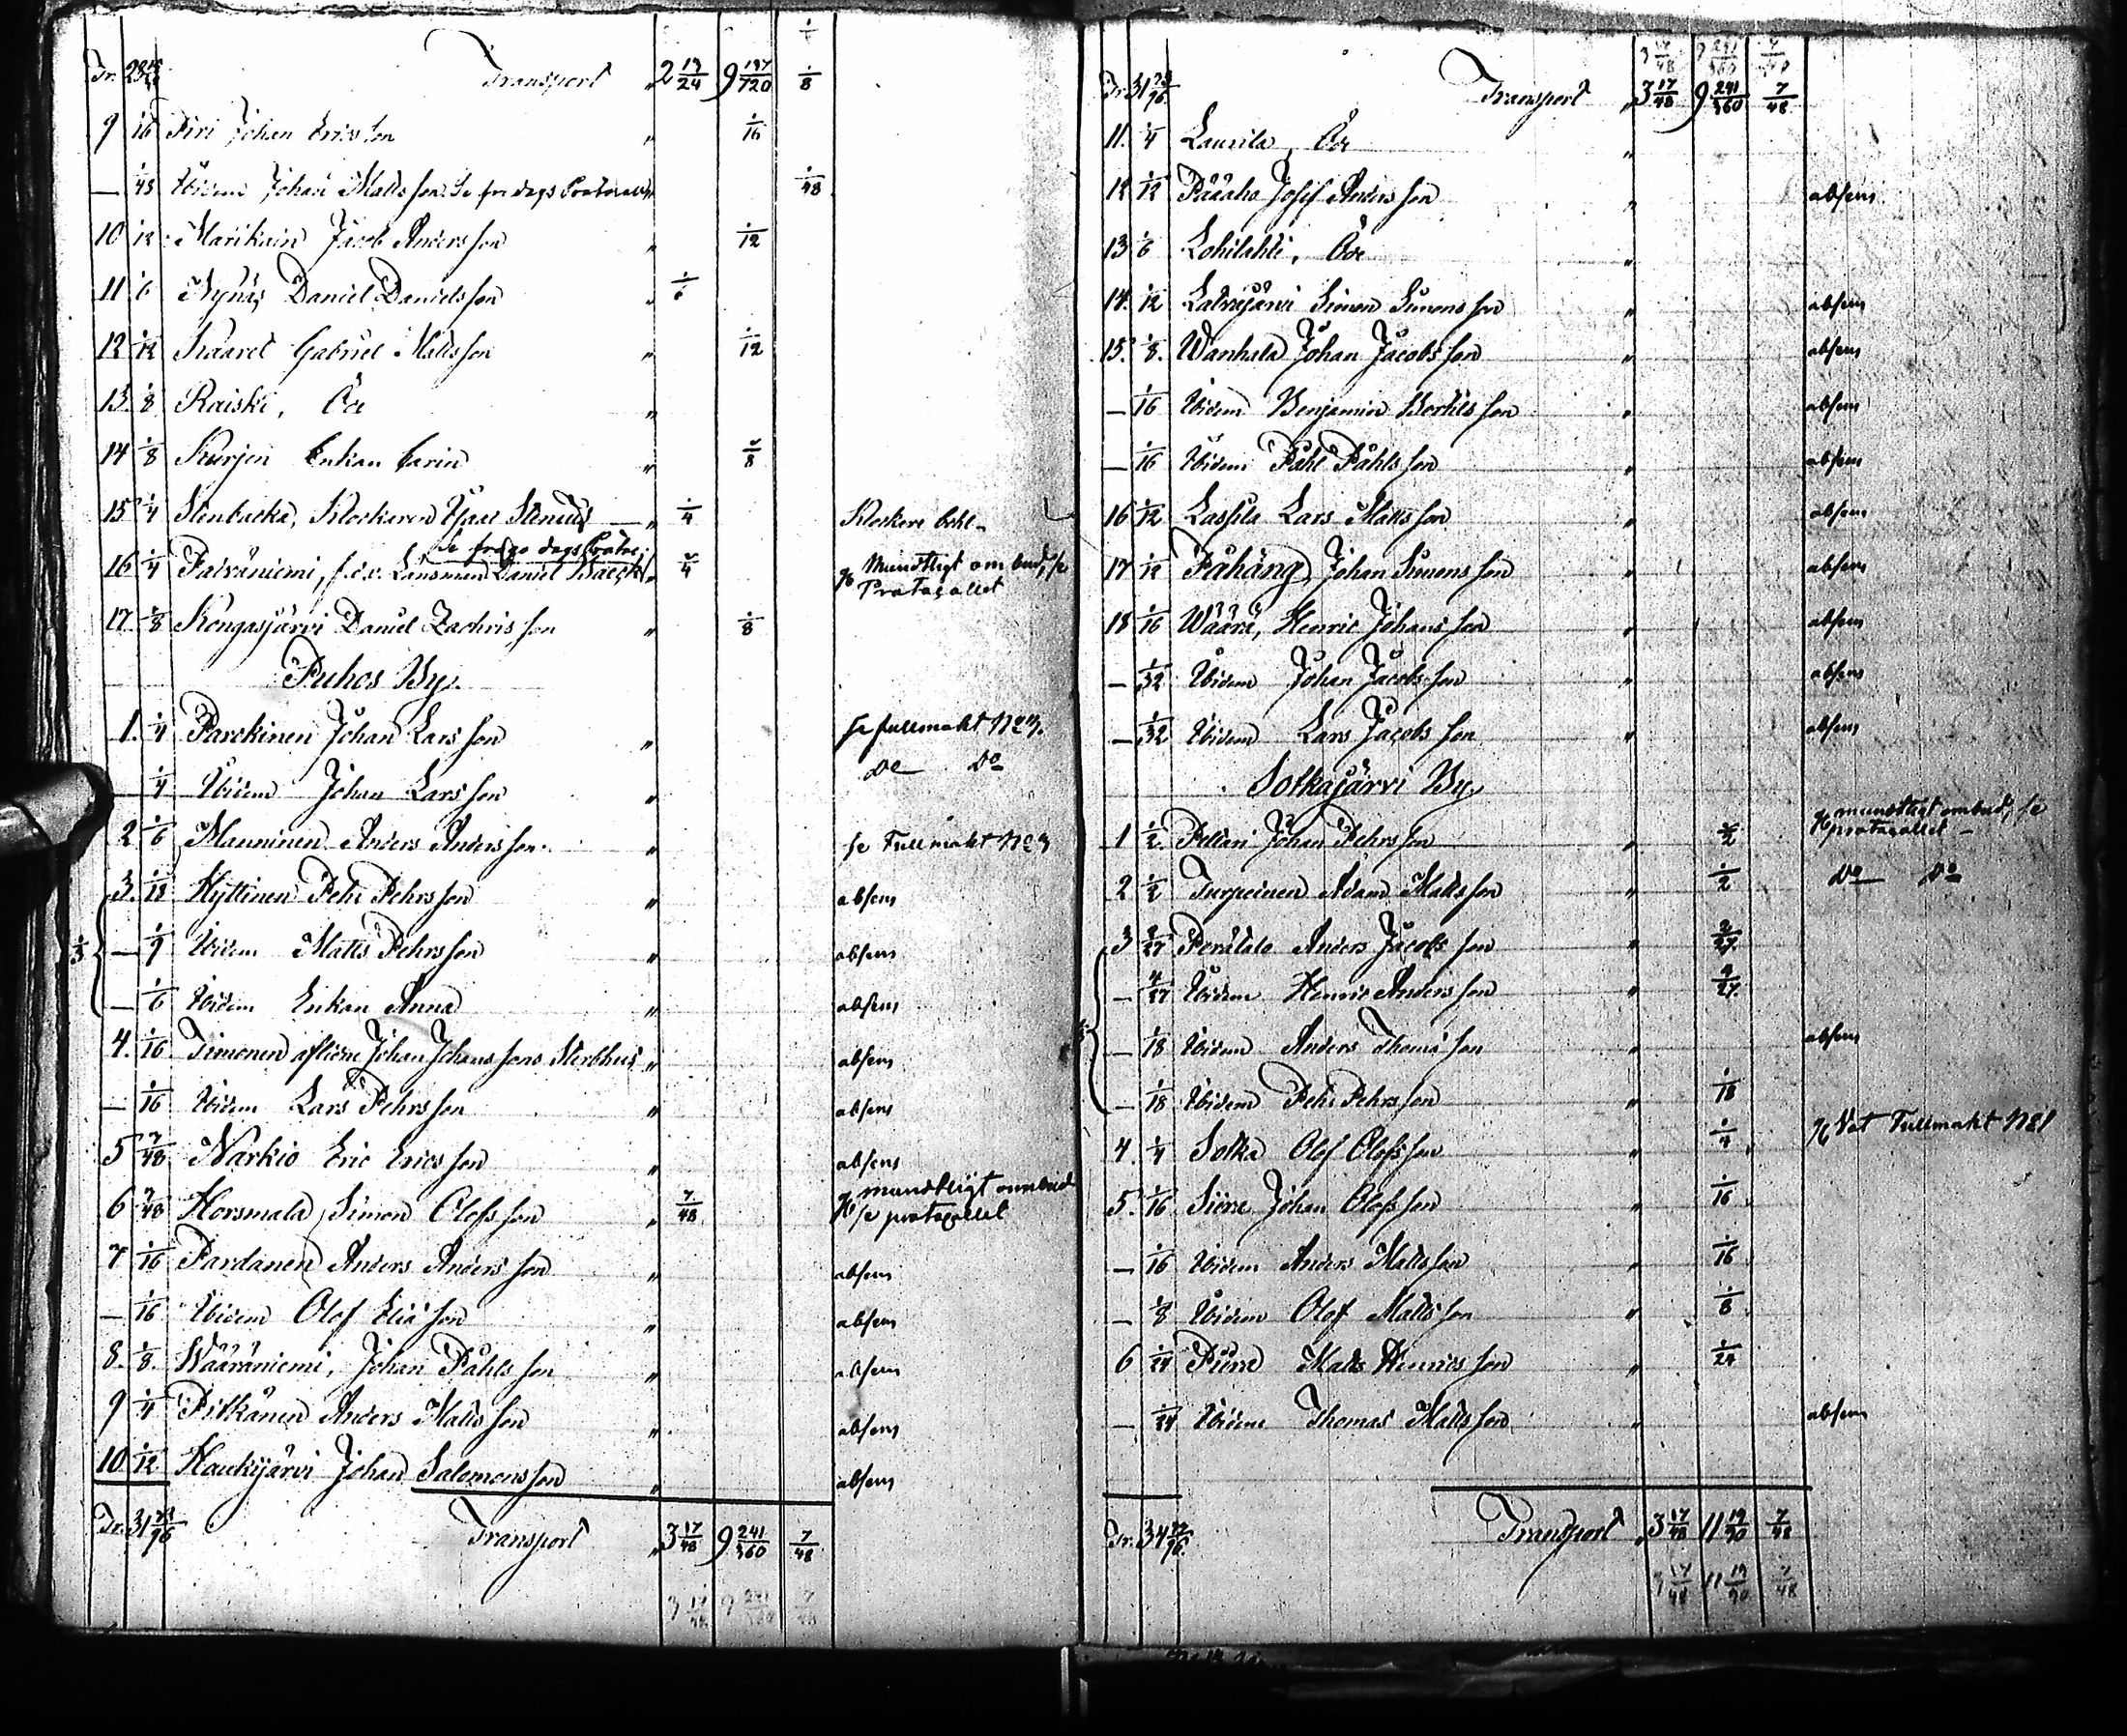 Transport " 2 19/24 9 197/720 1/8
9 1/16 Piri Johan Ericsson " 1/16
— 1/48 Ibidem Johan Mattsson " 1/48
10 1/12 Marikain Jacob Andersson " 1/12
11 1/6 Nynäs Daniel Danielsson " 1/6
12 1/12 Kaarel Gabriel Mattsson " 1/12
13. 1/8 Raiski, Öde "
14 1/8 Kurjen Enkan Carin " 1/8
15 1/4 Stenbacka, Klockaren Stenius — " 1/4 Klockare
16 1/4 Länsman Daniel " 1/4 Mundtligt ombud, se Protocollet
17. 1/8 Kongasjärvi Daniel Zachrisson " 1/8
Puhos By.
1. 1/4 Parckinen Johan Larsson " se fullmakt
— 1/4 Ibidem Johan Larsson " Do
2 1/6 Manninen Anders Andersson " se Fullmakt
3. 1/18 Hyttinen Pehr Pehrsson " absens
— 1/9 Ibidem Matts Pehrsson " absens
1/3
— 1/6 Ibidem Enkan Anna " absens
4. 1/16 Timonen aflidne Johan Johanssons Sterbhus " absens
— 1/16 Ibidem Lars Pehrsson " absens
5 7/48 Narkio Eric Ericsson " absens
6 7/48 Horsmala, Simon Olofsson " 7/48 mundtligt ombud se protocollet
7 1/16 Pardanen Anders Andersson " absens
— 1/16 Ibidem Olof Eliasson " absens
8. 1/8. Wääräniemi, Johan Påhlsson " absens
9 1/4 Pitkänen Anders Mattsson " absens
10. 1/12 Haukijärvi Johan Salomonsson " absens
Tr. 31 73/96 Transport " 3 17/48 9 241/360 7/48
3 17/48 9 241/360 7/48
3 17/48 9 241/360 7/48
Tr. 31 73/96 Transport " 3 17/48 9 241/360 7/48
11. 1/4 Laurila, Öde "
12 1/12 Pääaho Josef Andersson " absens
13 1/6 Lohilahti, Öde "
14. 1/12 Latvajärvi Simon Simonsson " absens
15. 1/8. Wanhala Johan Jacobsson " absens
— 1/16 Ibidem Benjamin Bertilsson " absens
— 1/16 Ibidem Påhl Påhlsson " absens
16 1/12 Lassila Lars Mattsson " absens
17 1/12 Johan Simonsson " absens
18 1/16 Wäärä, Henric Johansson " absens
— 1/32 Ibidem Johan Jacobsson " absens
— 1/32 Ibidem Lars Jacobsson " absens
Sotkajärvi By.
1 1/2. Pellari Johan Pehrsson " 1/2 mundtligt ombud, se protocollet —
2 1/2 Turpeinen Adam Mattsson " 1/2 Do Do
3 2/27 Perälälo Anders Jacobsson " 2/27.
— 4/27 Ibidem Henric Andersson " 4/27.
— 1/18 Ibidem Anders Thomasson " absens
— 1/18 Ibidem Pehr Pehrsson " 1/18
4. 1/4 Sotka Olof Olofsson " 1/4 Fullmakt
5. 1/16 Siira Johan Olofsson " 1/16
— 1/16 Ibidem Anders Mattsson " 1/16
— 1/8 Ibidem Olof Mattsson " 1/8
6 1/24 Matts Henricsson " 1/24
— 1/24 Ibidem Thomas Mattsson " absens
Transport " 3 17/48 11 19/90 7/48
3 17/48 11 19/90 7/48